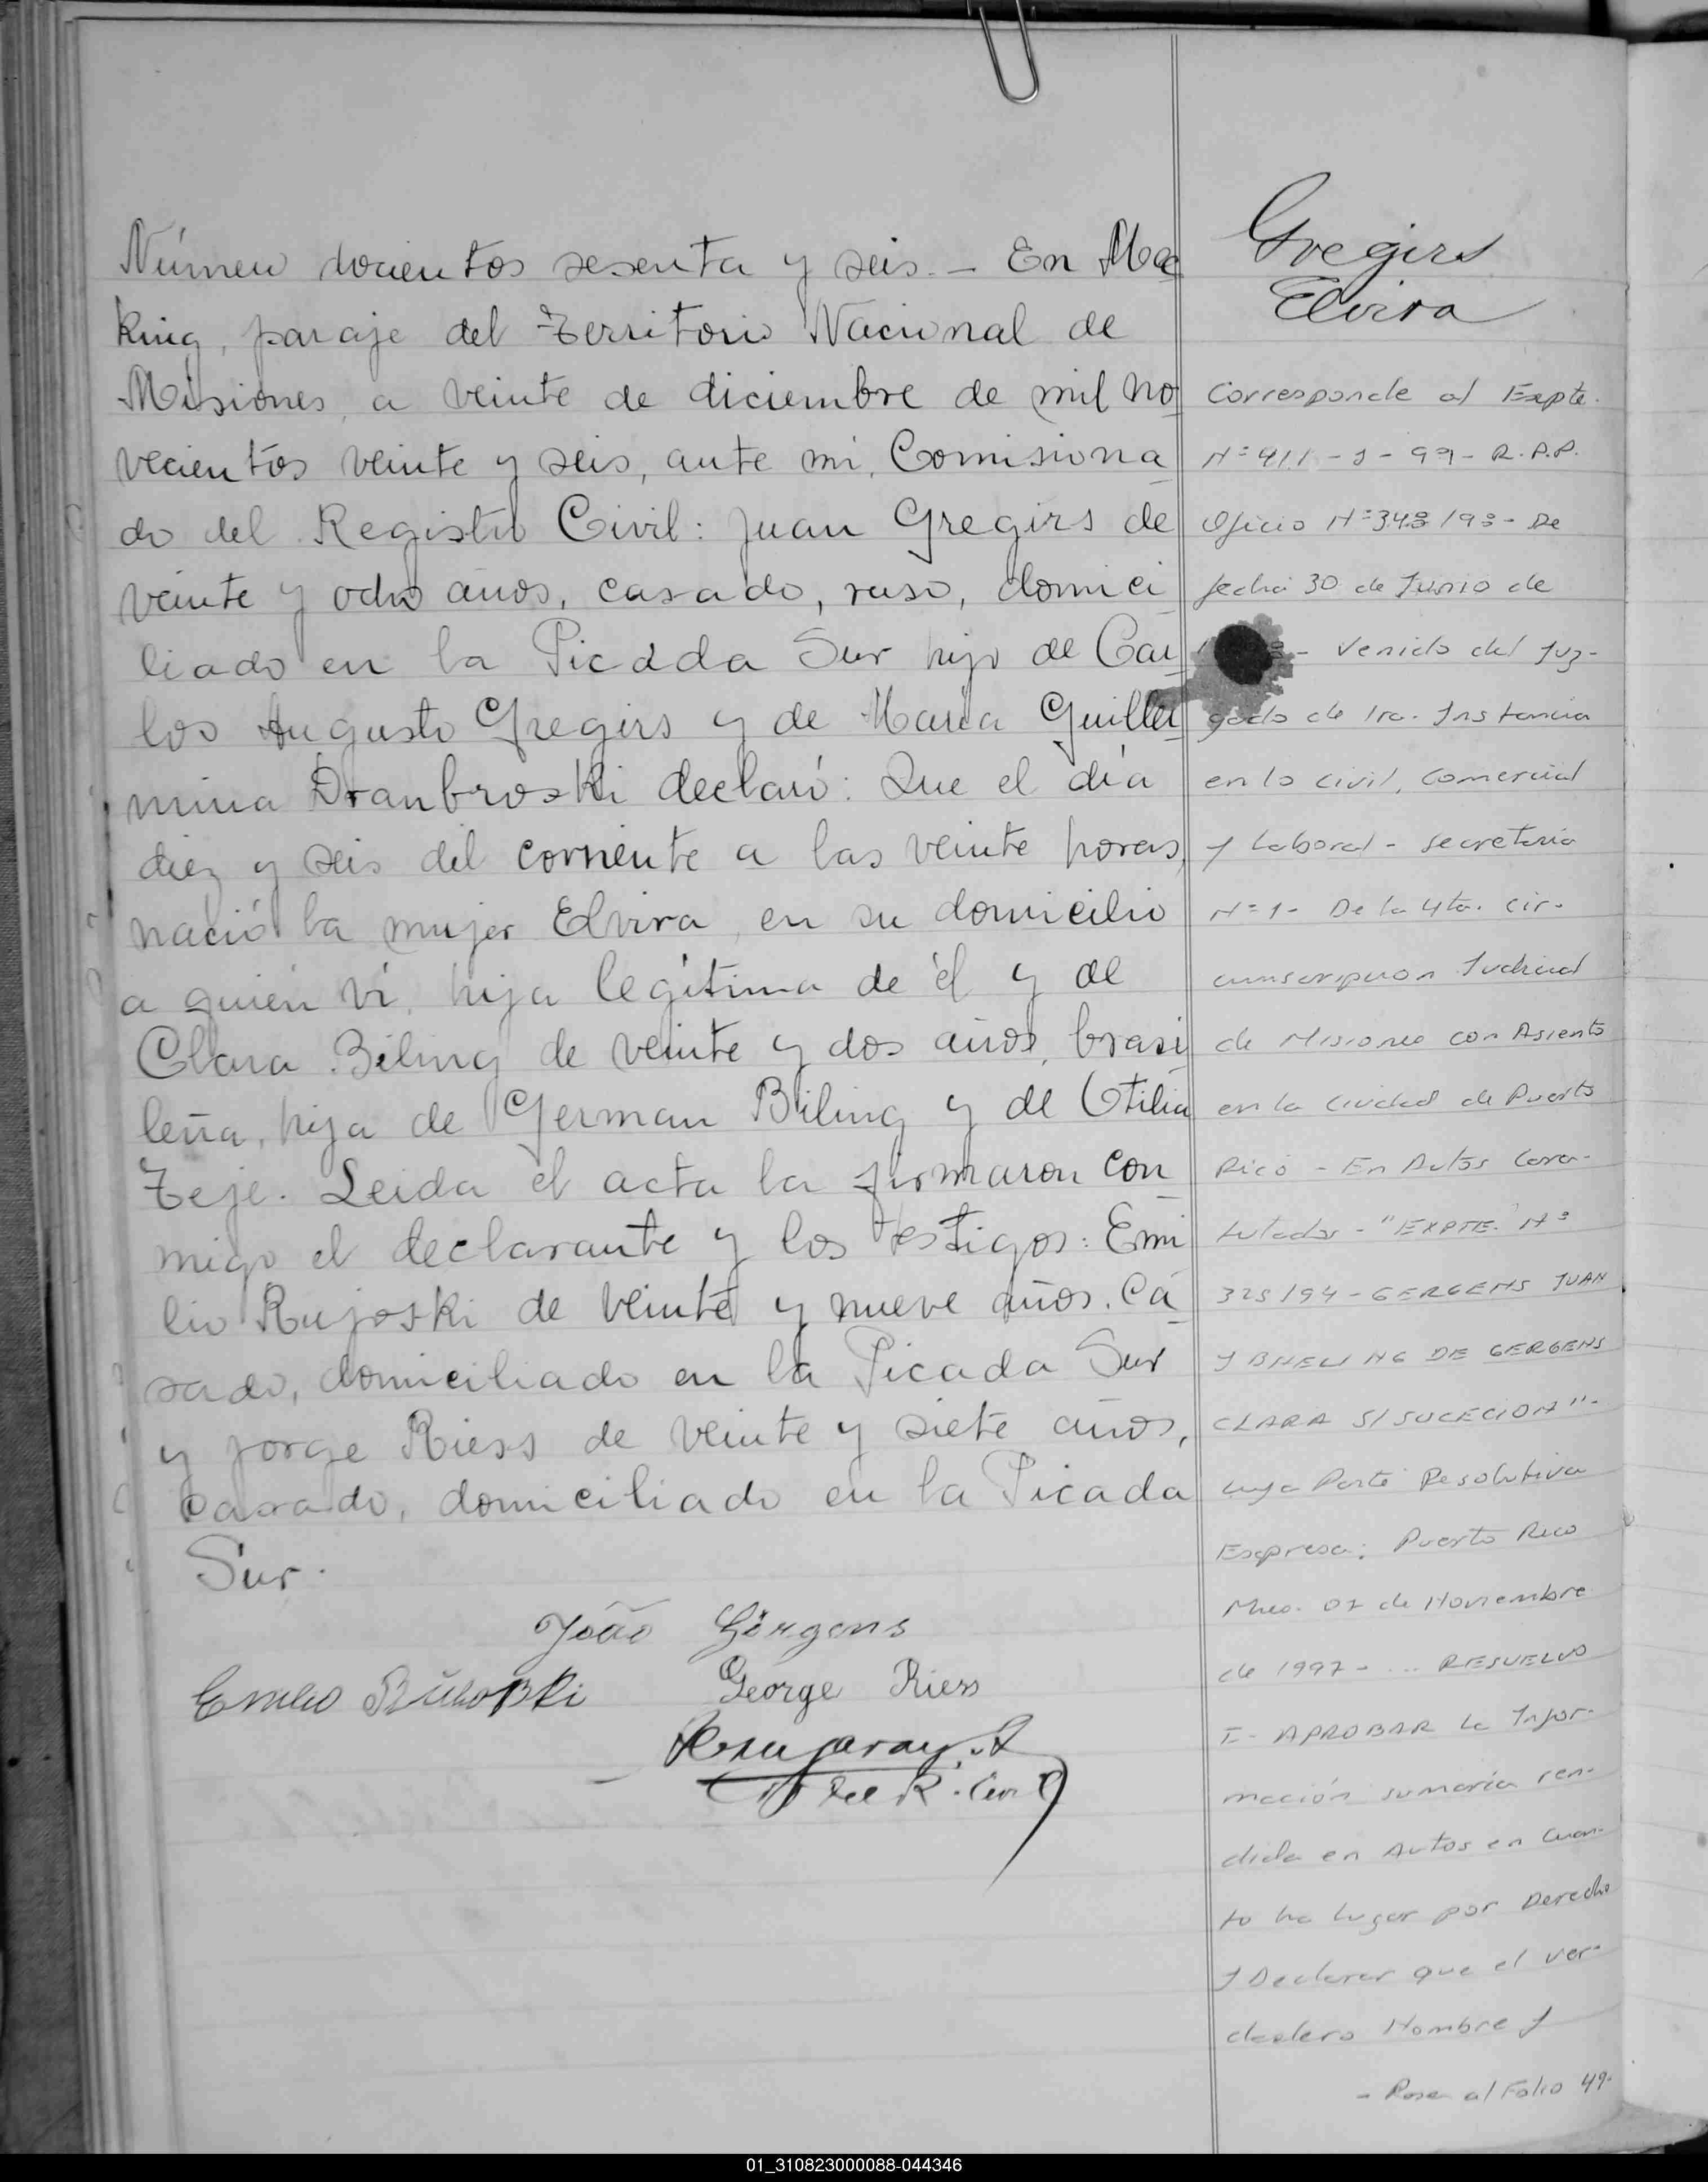 Número docientos sesenta y seis. - En Mac
King, paraje del Territorio Nacional de
Misiones, a veinte de diciembre de mil no
vecientos veinte y seis, ante mí, Comisiona
do del Registro Civil: Juan Gregirs de
veinte y ocho años, casado, ruso, domici
liado en la Picada Sur hijo de Car
los Augusto Gregirs y de María Guiller
mina Dranbroski declaró: Que el día
diez y seis del corriente a las veinte horas,
nació la mujer Elvira, en su domicilio
a quien ví, hija legítima de él y de
Clara Biling de veinte y dos años, brasi
leña, hija de German Biling y de Otilia
Teje. Leida el acta la firmaron con
migo el declarante y los testigos: Emi
lio Rujoski de veinte y nueve años, ca
sado, domiciliado en la Picada Sur
y Jorge Riess de veinte y siete años,
casado, domiciliado en la Picada
Sur.
João Görgens
Emilio
George Riess
del R. Civil
Gregirs
Elvira
Corresponde al Expte.
Nº 911 - J - 99 - R.P.P.
Oficio Nº 343/98 - De
fecha 30 de Junio de
- Venido del Juz-
gado de 1ra. Instancia
en lo Civil, Comercial
y Laboral - Secretaria
Nº 1 - De la 4ta. Cir-
cunscripcion Judicial
de Misiones con Asiento
en la Ciudad de Puerto
Rico - En Autos Cara-
tulados - "EXPTE. Nº
325/94 - GERGENS JUAN
Y BHELING DE GERGENS
CLARA S/ SUCECION" -
cuya Parte Resolutiva
Expresa: Puerto Rico
Mnes. 07 de Noviembre
de 1997 - ... RESUELVO
I - APROBAR la Infor-
mación sumaria ren-
dida en Autos en Cuan-
to ha lugar por Derecho
y Declarar que el ver-
dadero Nombre y
- Pasa al Folio 49-
01_310823000088-044346